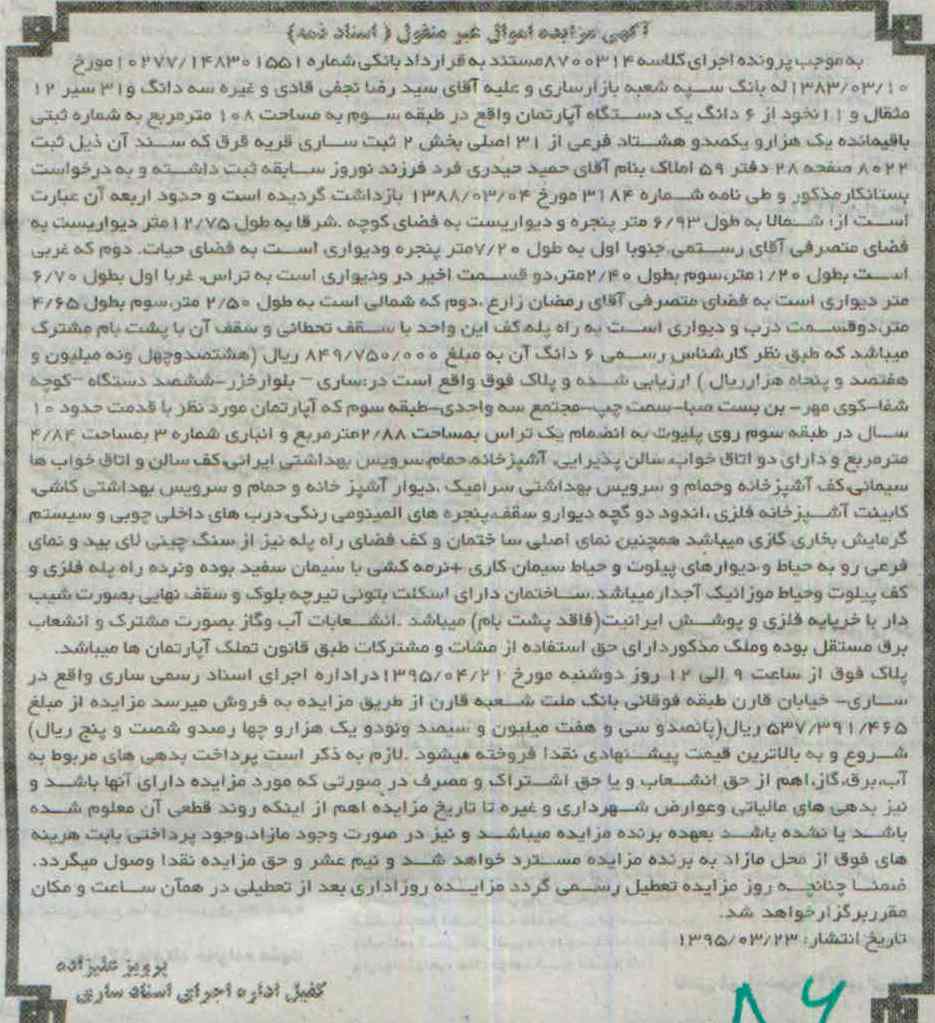 آگهی مزایده اموال غیر منقول ( اسناد ذمه)
به موجب پرونده اجرای کلاسه ۸۷۰۰۳۱۴مستند به قرارداد بانکی شماره ۱۰۲۷۷/۱۴۸۳۰۱۵۵۱ مورخ
۱۳۸۳/۰۳/۱۰ له بانک سپه شعبه بازارساری و علیه آقای سید رضا نجفی قادی و غیره سه دانگ و۳۱ سیر ۱۲
مثقال و ۱۱ نخود از ۶ دانگ یک دستگاه آپارتمان واقع در طبقه سوم به مساحت ۱۰۸ مترمربع به شماره ثبتی
باقیمانده یک هزارو یکصدو هشتاد فرعی از ۳۱ اصلی بخش ۲ ثبت ساری قریه قرق که سند آن ذیل ثبت
۸۰۲۲ صفحه ۲۸ دفتر ۵۹ املاک بنام آقای حمید حیدری فرد فرزند نوروز سابقه ثبت داشته و به درخواست
بستانکارمذکور و طی نامه شماره ۳۱۸۴ مورخ ۱۳۸۸/۰۳/۰۴ بازداشت گردیده است و حدود اربعه آن عبارت
است از: شمالا به طول ۶/۹۳ متر پنجره و دیواریست به فضای کوچه .شرقا به طول ۱۲/۷۵متر دیواریست به
فضای متصرفی آقای رستمی.جنوبا اول به طول ۷/۲۰متر پنجره ودیواری است به فضای حیات. دوم که غربی
است بطول ۱/۲۰ متر،سوم بطول ۲/۴۰متر،دو قسمت اخیر در ودیواری است به تراس. غربا اول بطول ۶/۷۰
متر دیواری است به فضای متصرفی آقای رمضان زارع .دوم که شمالی است به طول ۲/۵۰ متر،سوم بطول ۴/۶۵
متر،دوقسمت درب و دیواری است به راه پله.کف این واحد با سقف تحطانی و سقف آن با پشت بام مشترک
میباشد که طبق نظر کارشناس رسمی ۶ دانگ آن به مبلغ ۸۴۹/۷۵۰/۰۰۰ ریال (هشتصدوچهل ونه میلیون و
هفتصد و پنجاه هزارریال ) ارزیابی شده و پلاک فوق واقع است در:ساری – بلوارخزر–ششصد دستگاه –کوچه
شفا–کوی مهر– بن بست صبا–سمت چپ–مجتمع سه واحدی–طبقه سوم که آپارتمان مورد نظر با قدمت حدود ۱۰
سال در طبقه سوم روی پلیوت به انضمام یک تراس بمساحت ۲/۸۸مترمربع و انباری شماره ۳ بمساحت ۴/۸۴
مترمربع و دارای دو اتاق خواب، سالن پذیرایی، آشپزخانه،حمام،سرویس بهداشتی ایرانی،کف سالن و اتاق خواب ها
سیمانی،کف آشپزخانه وحمام و سرویس بهداشتی سرامیک ،دیوار آشپز خانه و حمام و سرویس بهداشتی کاشی،
کابینت آشپزخانه فلزی ،اندود دو گچه دیوارو سقف،پنجره های المینومی رنگی،درب های داخلی چوبی و سیستم
گرمایش بخاری گازی میباشد همچنین نمای اصلی سا ختمان و کف فضای راه پله نیز از سنگ چینی لای بید و نمای
فرعی رو به حیاط و دیوارهای پیلوت و حیاط سیمان کاری +نرمه کشی با سیمان سفید بوده ونرده راه پله فلزی و
کف پیلوت وحیاط موزائیک آجدارمیباشد.ساختمان دارای اسکلت بتونی تیرچه بلوک و سقف نهایی بصورت شیب
دار با خرپایه فلزی و پوشش ایرانیت(فاقد پشت بام) میباشد .انشعابات آب وگاز بصورت مشترک و انشعاب
برق مستقل بوده وملک مذکوردارای حق استفاده از مشات و مشترکات طبق قانون تملک آپارتمان ها میباشد.
پلاک فوق از ساعت ۹ الی ۱۲ روز دوشنبه مورخ ۱۳۹۵/۰۴/۲۱دراداره اجرای اسناد رسمی ساری واقع در
ساری– خیابان قارن طبقه فوقانی بانک ملت شعبه قارن از طریق مزایده به فروش میرسد مزایده از مبلغ
۵۳۷/۳۹۱/۴۶۵ ریال(پانصدو سی و هفت میلیون و سیصد ونودو یک هزارو چها رصدو شصت و پنج ریال)
شروع و به بالاترین قیمت پیشنهادی نقدا فروخته میشود .لازم به ذکر است پرداخت بدهی های مربوط به
آب،برق،گاز،اهم از حق انشعاب و یا حق اشتراک و مصرف در صورتی که مورد مزایده دارای آنها باشد و
نیز بدهی های مالیاتی وعوارض شهرداری و غیره تا تاریخ مزایده اهم از اینکه روند قطعی آن معلوم شده
باشد یا نشده باشد بعهده برنده مزایده میباشد و نیز در صورت وجود مازاد،وجود پرداختی بابت هرینه
های فوق از محل مازاد به برنده مزایده مسترد خواهد شد و نیم عشر و حق مزایده نقدا وصول میگردد.
ضمنا چنانچه روز مزایده تعطیل رسمی گردد مزایده روزاداری بعد از تعطیلی در همان ساعت و مکان
مقرربرگزارخواهد شد.
تاریخ انتشار: ۱۳۹۵/۰۳/۲۳
پرویز علیزاده
کفیل اداره اجرای اسناد ساری
۸۶